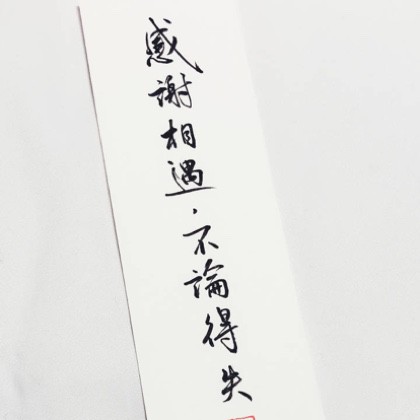 感謝相遇，不論得失